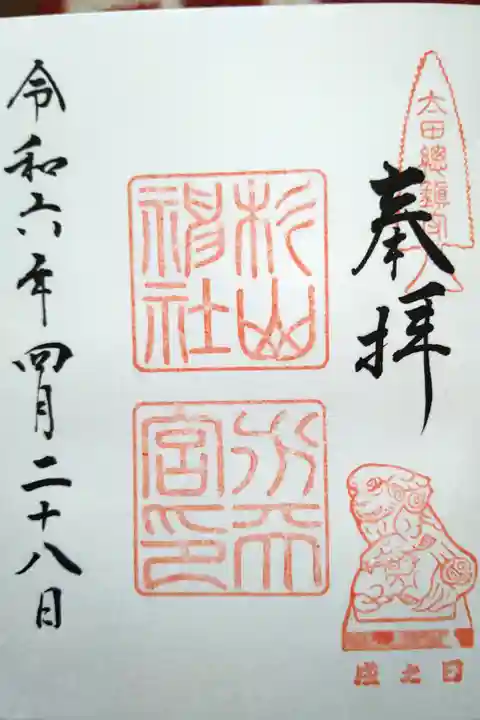 太田總鎮守
奉拝
杉山
神社
水天
宮印
令和六年四月二十八日
戌之日